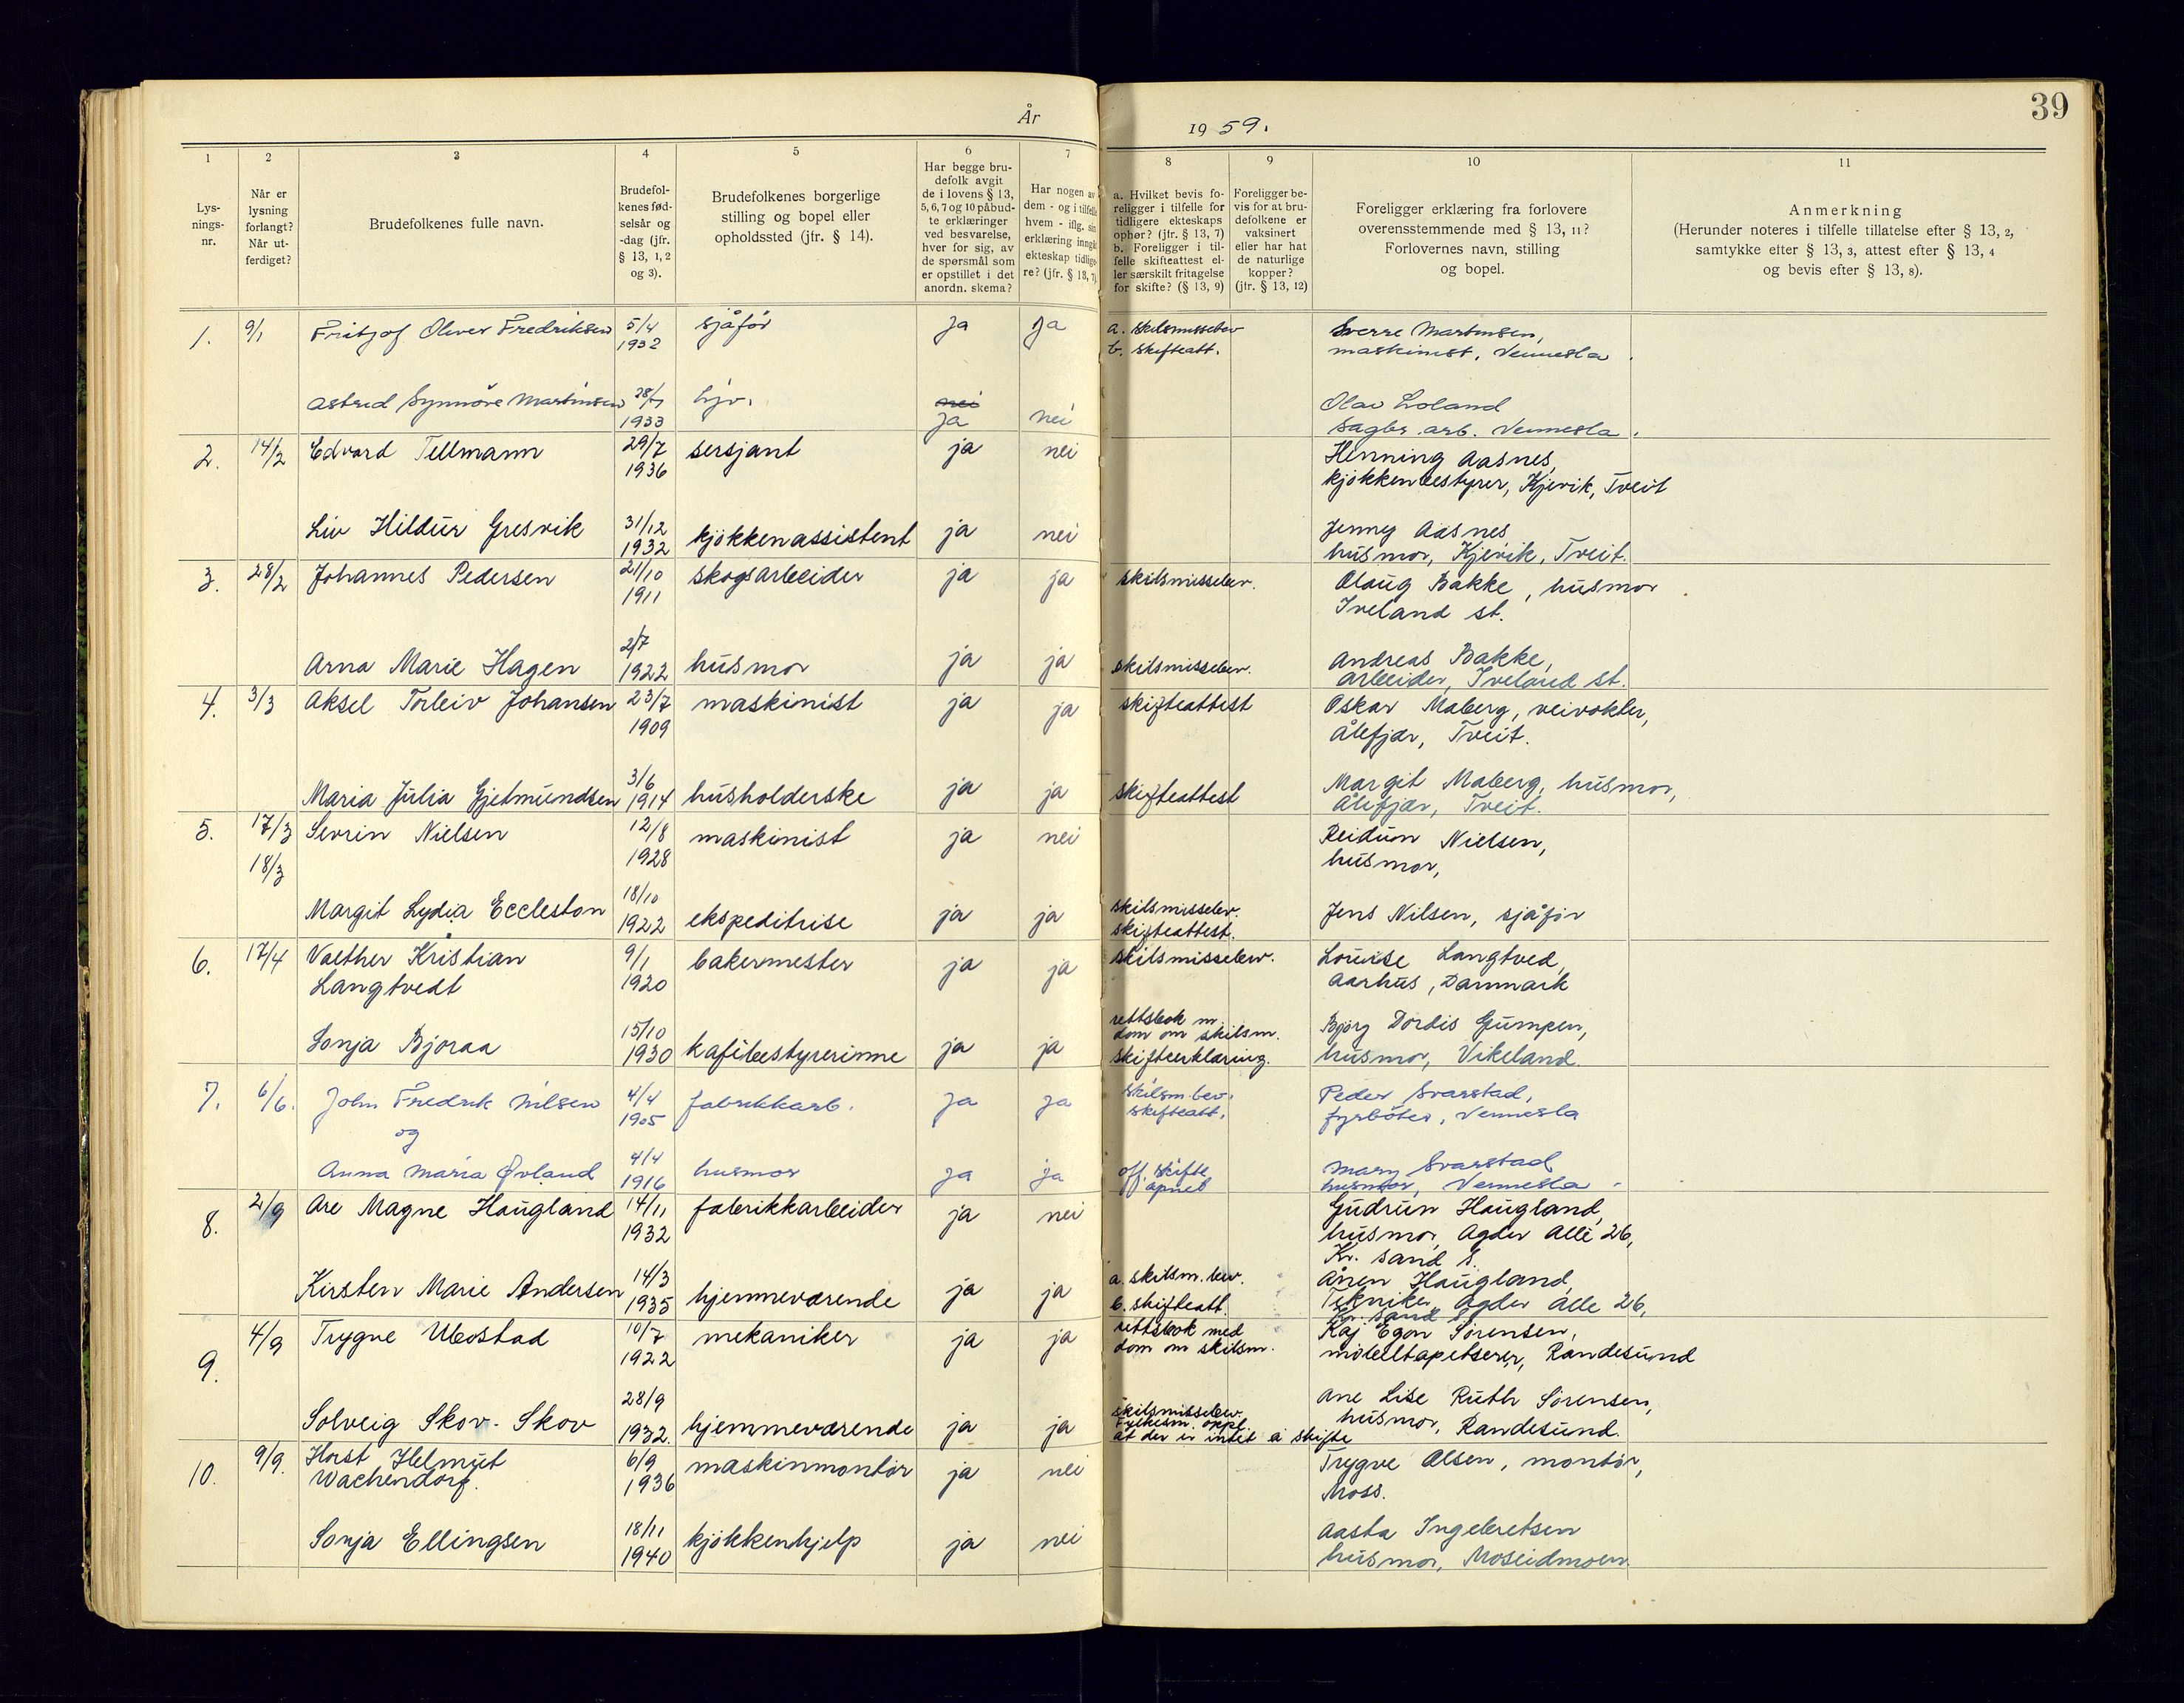 39
År 1959.
1 2 3 4 5 6 7 8 9 10 11
Lys-
nings-
nr.
Når er
lysning
forlangt?
Når ut-
ferdiget?
Brudefolkenes fulle navn.
Brudefol-
kenes fød-
selsår og
-dag (jfr.
§ 13, 1, 2
og 3).
Brudefolkenes borgerlige
stilling og bopel eller
opholdssted (jfr. § 14).
Har begge bru-
defolk avgit
de i lovens § 13,
5, 6, 7 og 10 påbud-
te erklæringer
ved besvarelse,
hver for sig, av
de spørsmål som
er opstillet i det
anordn. skema?
Har nogen av
dem - og i tilfelle
hvem - iflg. sin
erklæring inngått
ekteskap tidlige-
re? (jfr. § 13, 7)
a. Hvilket bevis fo-
religger i tilfelle for
tidligere ekteskaps
ophør? (jfr. § 13, 7)
b. Foreligger i til-
felle skifteattest el-
ler særskilt fritagelse
for skifte? (§ 13, 9)
Foreligger be-
vis for at bru-
defolkene er
vaksinert
eller har hat
de naturlige
kopper?
(jfr. § 13, 12)
Foreligger erklæring fra forlovere
overensstemmende med § 13, 11?
Forlovernes navn, stilling
og bopel.
Anmerkning
(Herunder noteres i tilfelle tillatelse efter § 13, 2,
samtykke etter § 13, 3, attest efter § 13, 4
og bevis efter § 13, 8).
1. 9/1 Fritjof Oliver Fredriksen 5/4 sjåfør ja ja a. skilsmissebev Sverre Martinsen,
1932 b. skifteatt. maskinist, Vennesla.
Astrid Synnøve Martinsen 28/7 hjv. nei Olav Loland
1933 ja nei sagbr. arb. Vennesla.
2. 14/2 Edvard Tellmann 29/7 sersjant ja nei Henning Aasnes,
1936 kjøkkenbestyrer, Kjevik, Tveit
Liv Hildur Gresvik 31/12 kjøkkenassistent ja nei Jenny Aasnes,
1932 husmor, Kjevik, Tveit.
3. 28/2 Johannes Pedersen 21/10 skogsarbeider ja ja skilsmissebev. Olaug Bakke, husmor
1911 Iveland st.
Arna Marie Hagen 2/7 husmor ja ja skilsmissebev. Andreas Bakke,
1922 arbeider, Iveland st.
4. 3/3 Aksel Torleiv Johansen 23/7 maskinist ja ja skifteattest Oskar Maberg, veivokter,
1909 Ålefjær, Tveit.
Maria Julia Gjetmundsen 3/6 husholderske ja ja skifteattest Margit Maberg, husmor,
1914 Ålefjær, Tveit.
5. 17/3 Sevrin Nielsen 12/8 maskinist ja nei Reidun Nielsen,
18/3 1928 husmor,
Margit Lydia Eccleston 18/10 ekspeditrise ja ja skilsmissebev. Jens Nilsen, sjåfør
1922 skifteattest.
6. 17/4 Valther Kristian 9/1 bakermester ja ja skilsmissebev. Louise Langtved,
Langtvedt 1920 Aarhus, Danmark
Sonja Bjoraa 15/10 kafébestyrerinne ja ja rettsbok m. Bjørg Dordis Gumpen,
1930 dom om skilsm. husmor, Vikeland.
skifteerklæring.
7. 6/6. John Fredrik Nilsen 4/4 fabrikkarb. ja ja skilsm.bev. Peder Svarstad,
og 1905 skifteatt. fyrbøter, Vennesla
Anna Maria Øvland 4/4 husmor ja ja off. skifte Mary Svarstad
1916 åpnet husmor, Vennesla.
8. 2/9 Are Magne Haugland 14/11 fabrikkarbeider ja nei Gudrun Haugland,
1932 husmor, Agder Allé 26,
Kr. sand S.
Kirsten Marie Andersen 14/3 hjemmeværende ja ja a. skilsm.bev. Ånen Haugland,
1935 b. skifteatt. Tekniker, Agder Alle 26,
Kr. sand S.
9. 4/9 Trygve Ubostad 10/7 mekaniker ja ja rettsbok med Kaj Egon Sørensen,
1922 dom om skilsm. møbeltapetserer, Randesund
Solveig Skov-Skov 28/9 hjemmeværende ja ja skilsmissebev. Ane Lise Ruth Sørensen,
1932. Fylkesm. oppl. husmor, Randesund.
at der er intet å skifte
10. 9/9. Horst Helmut 6/9 maskinmontør ja nei Trygve Olsen, montør,
Wachendorf. 1936 Moss.
Sonja Ellingsen 18/11 kjøkkenhjelp ja nei Aasta Ingebretsen
1940 husmor, Moseidmoen.